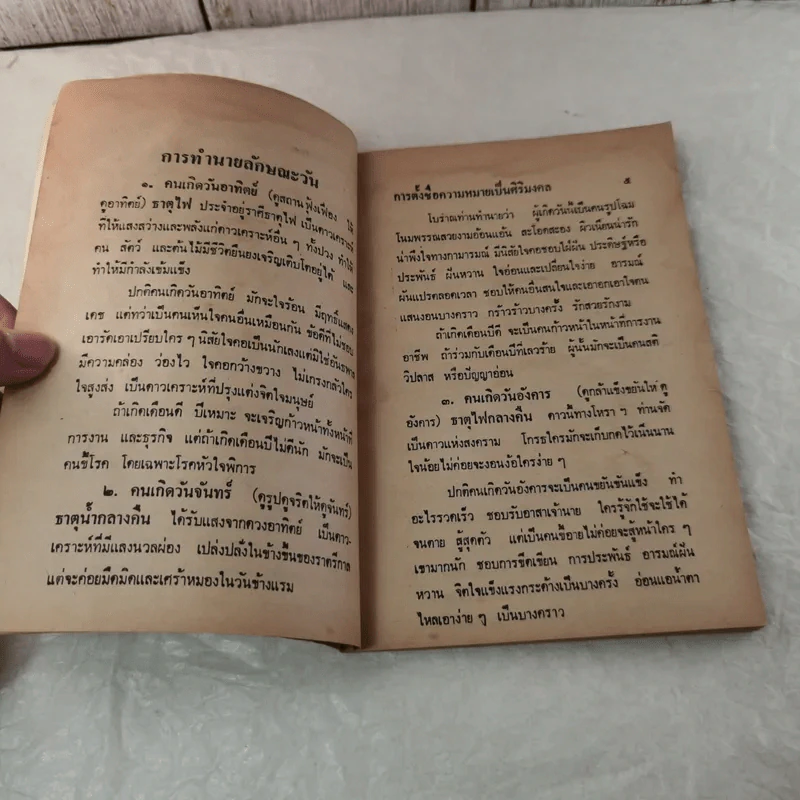 การทำนายลักษณะวัน
๑. คนเกิดวันอาทิตย์ (ดูสถานฟุ้งเฟื่อง ให้
ดูอาทิตย์) ธาตุไฟ ประจำอยู่ราศีธาตุไฟ เป็นดาวเคราะห์
ที่ให้แสงสว่างและพลังแก่ดาวเคราะห์อื่น ๆ ทั้งปวง ทำให้
คน สัตว์ และต้นไม้มีชีวิตยืนยงเจริญเติบโตอยู่ได้ และ
ทำให้มีกำลังเข้มแข็ง
ปกติคนเกิดวันอาทิตย์ มักจะใจร้อน มีฤทธิ์แสดง
เดช แต่ทว่าเป็นคนเห็นใจคนอื่นเหมือนกัน ข้อดีที่ไม่ชอบ
เอารัดเอาเปรียบใคร ๆ นิสัยใจคอเป็นนักเลงแต่มิใช่อันธพาล
มีความคล่อง ว่องไว ใจคอกว้างขวาง ไม่เกรงกลัวใคร
ใจสูงส่ง เป็นดาวเคราะห์ที่ปรุงแต่งจิตใจมนุษย์
ถ้าเกิดเดือนดี ปีเหมาะ จะเจริญก้าวหน้าทั้งหน้าที่
การงาน และธุรกิจ แต่ถ้าเกิดเดือนปีไม่ดีนัก มักจะเป็น
คนขี้โรค โดยเฉพาะโรคหัวใจพิการ
๒. คนเกิดวันจันทร์ (ดูรูปดูจริตให้ดูจันทร์)
ธาตุน้ำกลางคืน ได้รับแสงจากดวงอาทิตย์ เป็นดาว-
เคราะห์ที่มีแสงนวลผ่อง เปล่งปลั่งในข้างขึ้นของราตรีกาล
แต่จะค่อยมืดมิดและเศร้าหมองในวันข้างแรม
การตั้งชื่อความหมายเป็นศิริมงคล ๕
โบราณท่านทำนายว่า ผู้เกิดวันนี้เป็นคนรูปโฉม
โนมพรรณสวยงามอ้อนแอ้น สะโอดสะอง ผิวเนียนน่ารัก
น่าพึงใจทางกามารมณ์ มีนิสัยใจคอชอบใฝ่ฝัน ประดิษฐ์หรือ
ประพันธ์ ฝันหวาน ใจอ่อนและเปลี่ยนใจง่าย อารมณ์
ผันแปรตลอดเวลา ชอบให้คนอื่นสนใจและเอาอกเอาใจตน
แสนงอนบางคราว กร้าวร้าวบางครั้ง รักสวยรักงาม
ถ้าเกิดเดือนปีดี จะเป็นคนก้าวหน้าในหน้าที่การงาน
อาชีพ ถ้าร่วมกับเดือนปีที่เลวร้าย ผู้นั้นมักจะเป็นคนสติ
วิปลาส หรือปัญญาอ่อน
๓. คนเกิดวันอังคาร (ดูกล้าแข็งขยันให้ดู
อังคาร) ธาตุไฟกลางคืน ดาวนี้ทางโหรา ฯ ท่านจัด
เป็นดาวแห่งสงคราม โกรธใครมักจะเก็บกดไว้เนิ่นนาน
ใจน้อยไม่ค่อยจะงอนง้อใครง่าย ๆ
ปกติคนเกิดวันอังคารจะเป็นคนขยันขันแข็ง ทำ
อะไรรวดเร็ว ชอบรับอาสาเจ้านาย ใครรู้จักใช้จะใช้ได้
จนตาย สู้สุดตัว แต่เป็นคนขี้อายไม่ค่อยจะสู้หน้าใคร ๆ
เขามากนัก ชอบการขีดเขียน การประพันธ์ อารมณ์ฝัน
หวาน จิตใจแข็งแรงกระด้างเป็นบางครั้ง อ่อนแอน้ำตา
ไหลเอาง่าย ๆ เป็นบางคราว